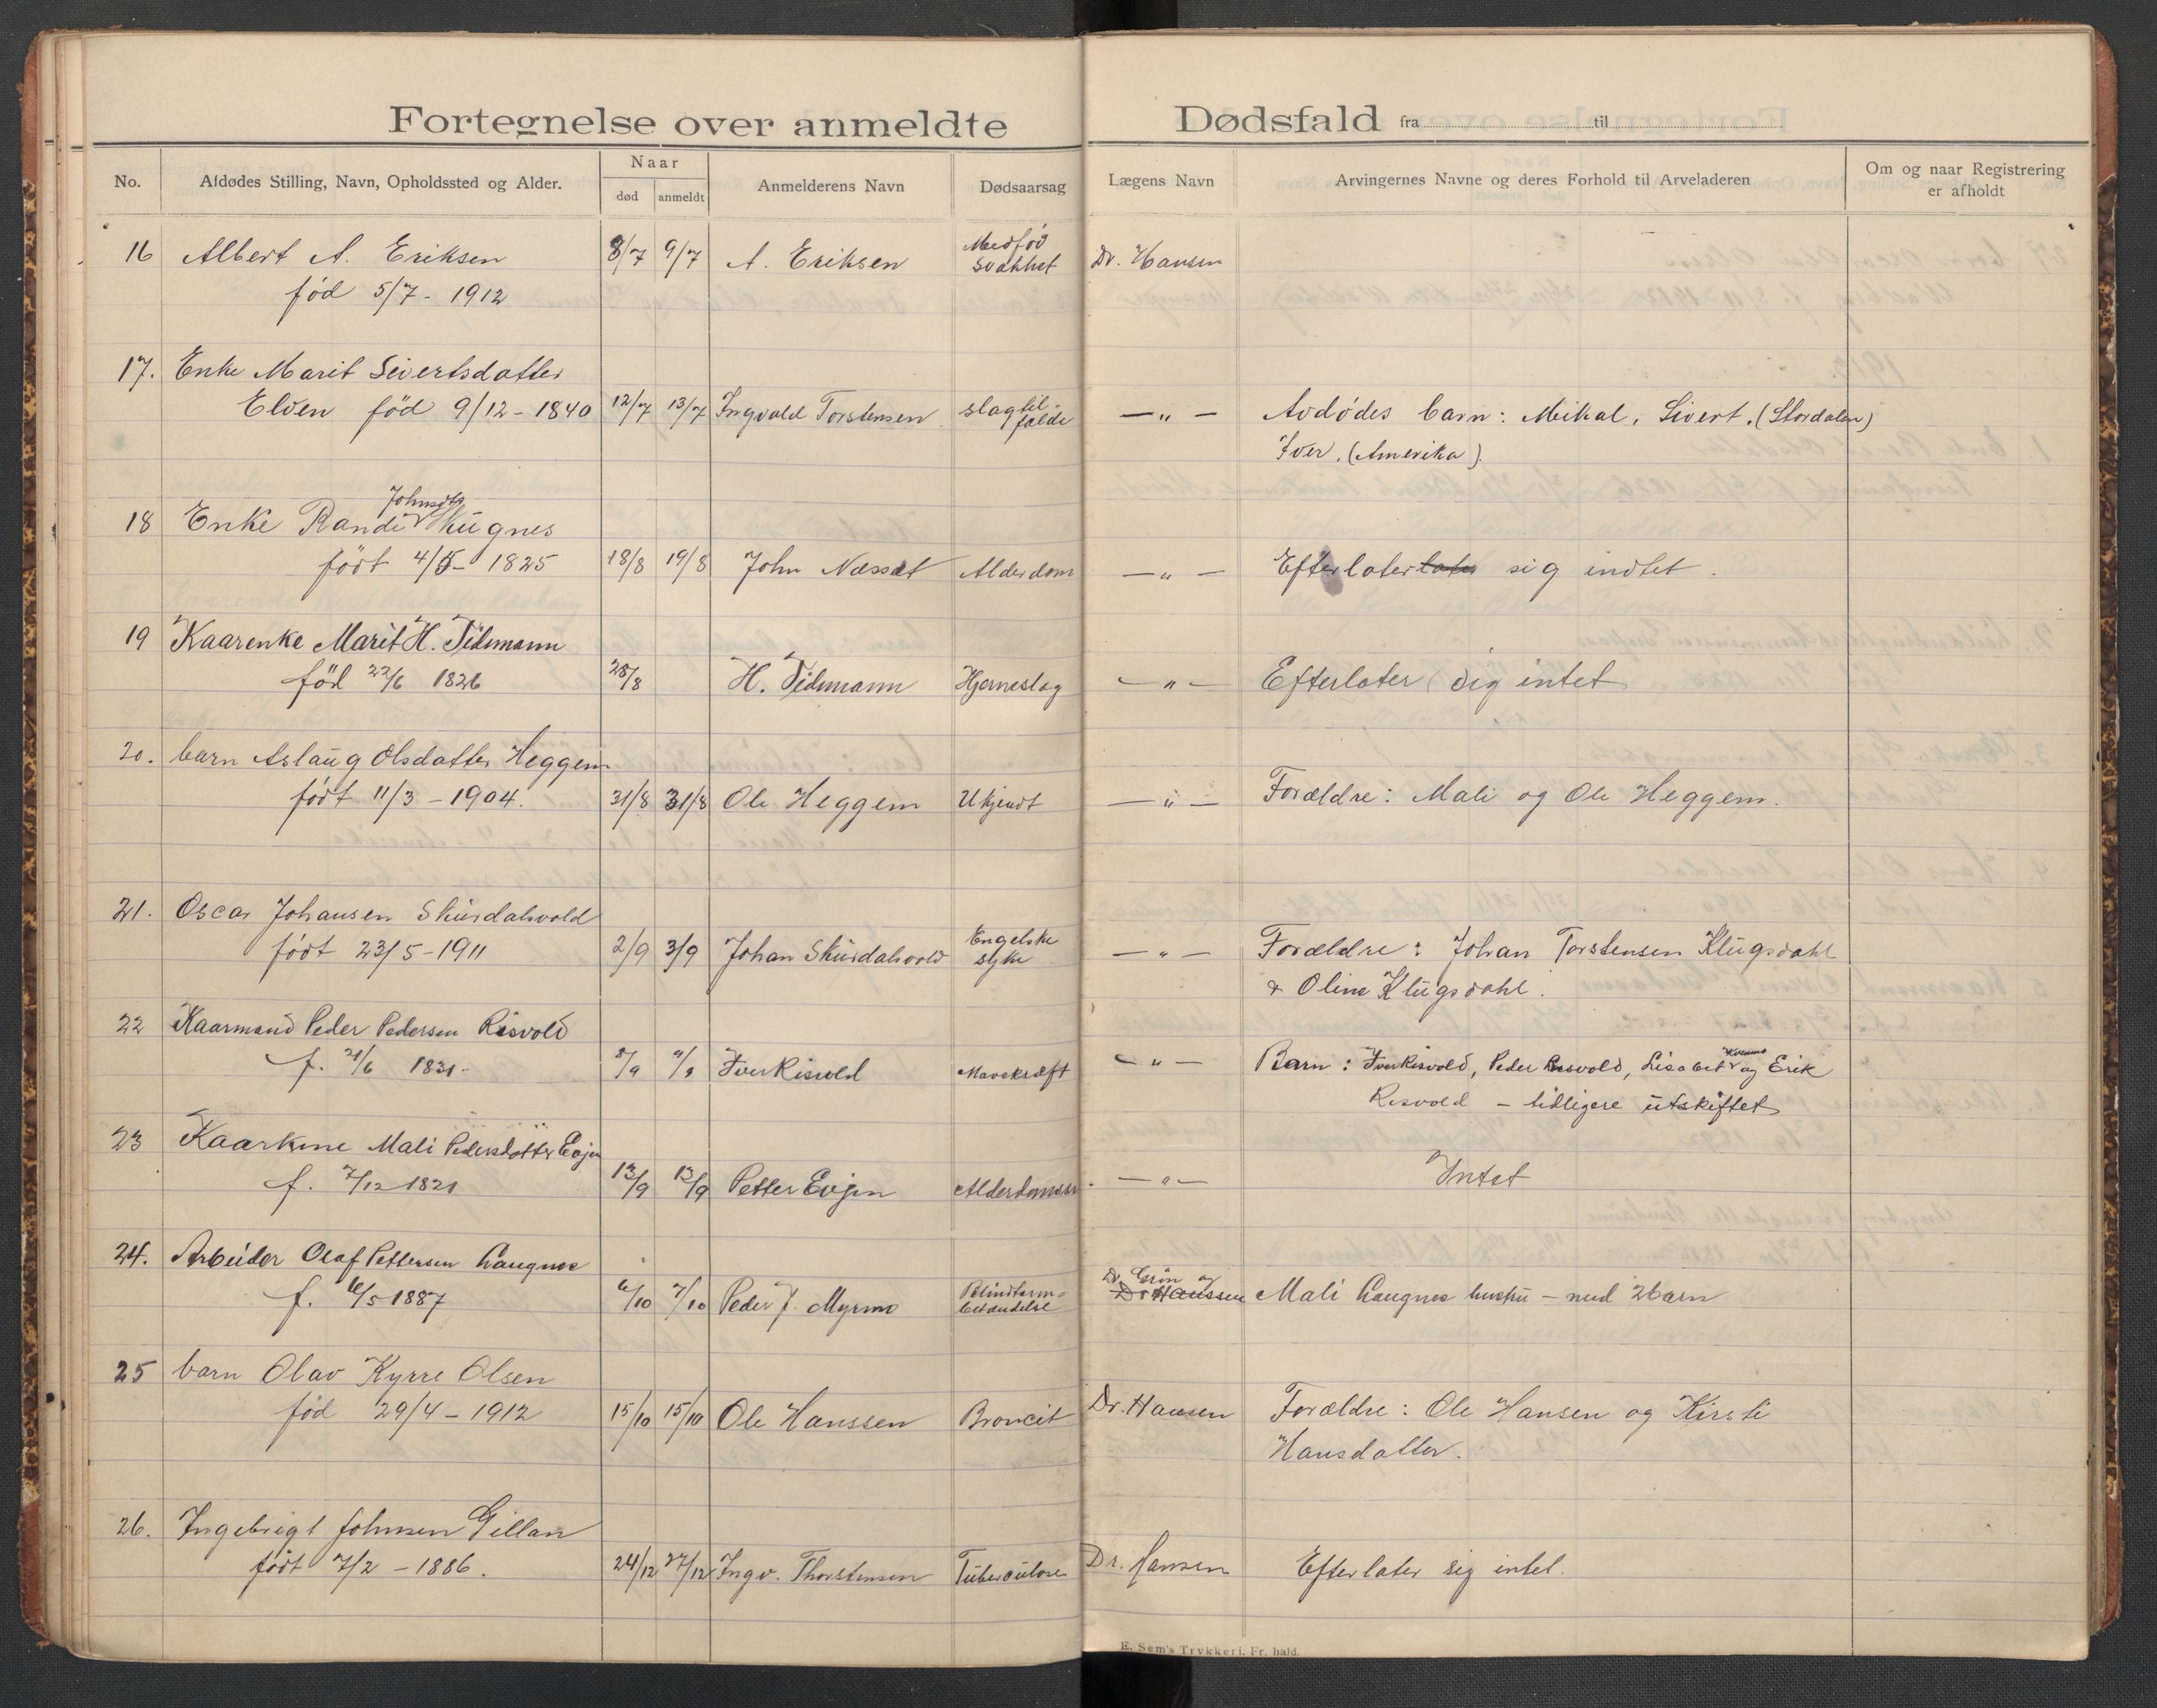 Fortegnelse over anmeldte Dødsfald fra til
No. Afdødes Stilling, Navn, Opholdssted og Alder. Naar død anmeldt Anmelderens Navn Dødsaarsag Lægens Navn Arvingernes Navne og deres Forhold til Arveladeren Om og naar Registrering er afholdt
16 Albert A. Eriksen 8/7 9/7 A. Eriksen Medfød svakhet Dr. Hansen
fød 5/7 - 1912
17. Enke Marit Sivertsdatter
Elven fød 9/12 - 1840 12/7 13/7 Ingvald Torstensen slagtilfælde — " — Avdødes barn: Mikal, Sivert, (Stordalen)
Iver, (Amerika).
18 Enke Randi Johnsdtr Skugnes
født 4/5 - 1825 18/8 19/8 John Næsset Alderdom — " — Efterlater sig indtet.
19 Kaarenke Marit H. Tidemann
fød 22/6 1826 28/8 H. Tidemann Hjerneslag — " — Efterlater sig intet
20. barn Aslaug Olsdatter Heggem
født 11/3 - 1904. 31/8 31/8 Ole Heggem Ukjendt — " — Forældre: Mali og Ole Heggem.
21. Oscar Johansen Skurdalsvold
født 23/5 - 1911 2/9 3/9 Johan Skurdalsvold Engelske syke — " — Forældre: Johan Torstensen Klugsdahl
& Oline Klugsdahl.
22 Kaarmand Peder Pedersen Risvold
f. 21/6 1831 - 8/9 9/9 Iver Risvold Mavekræft — " — Barn: Iver Risvold, Peder Risvold, Lisabet og Erik
Risvold - tidligere utskiftet
23 Kaarkone Mali Pedersdatter Evjen
f. 7/12 1821 13/9 13/9 Petter Evjen Alderdomssv. — " — Intet
24. Arbeider Olaf Pettersen Langnes
f. 16/5 1887 6/10 7/10 Peder J. Myrmo Blindtarmbetændelse Dr. Grün og Dr Hanssen Mali Langnes hustru - med 2 barn
25 barn Olav Kyrre Olsen
fød 29/4 - 1912 15/10 15/10 Ole Hanssen Broncit Dr. Hansen Forældre: Ole Hansen og Kirsti
Hansdatter.
26. Ingebrigt Johnsen Gillan
født 7/2 - 1886. 24/12 27/12 Ingv. Thorstensen Tuberculose Dr. Hansen Efterlater sig intet.
E. Sem's Trykkeri, Fr.hald.